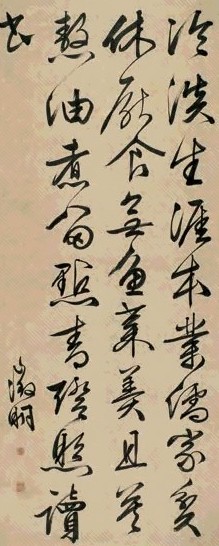 冷淡生涯本業儒家貧
休厭食無魚菜羹且莫
熬油煮留點青燈照讀
書
徵明